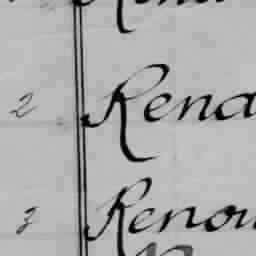 2 Rena
3 Renou